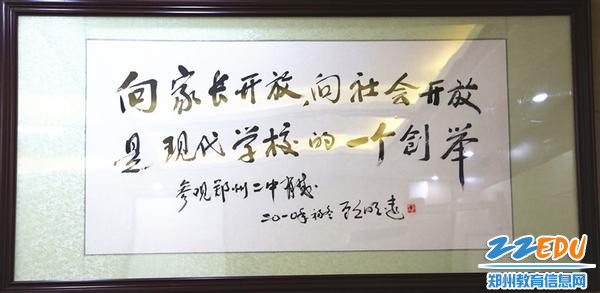 向家长开放,向社会开放
是现代学校的一个创举
参观郑州二中有感
二〇一〇年初冬 顾明远
ZZEDU
郑州教育信息网